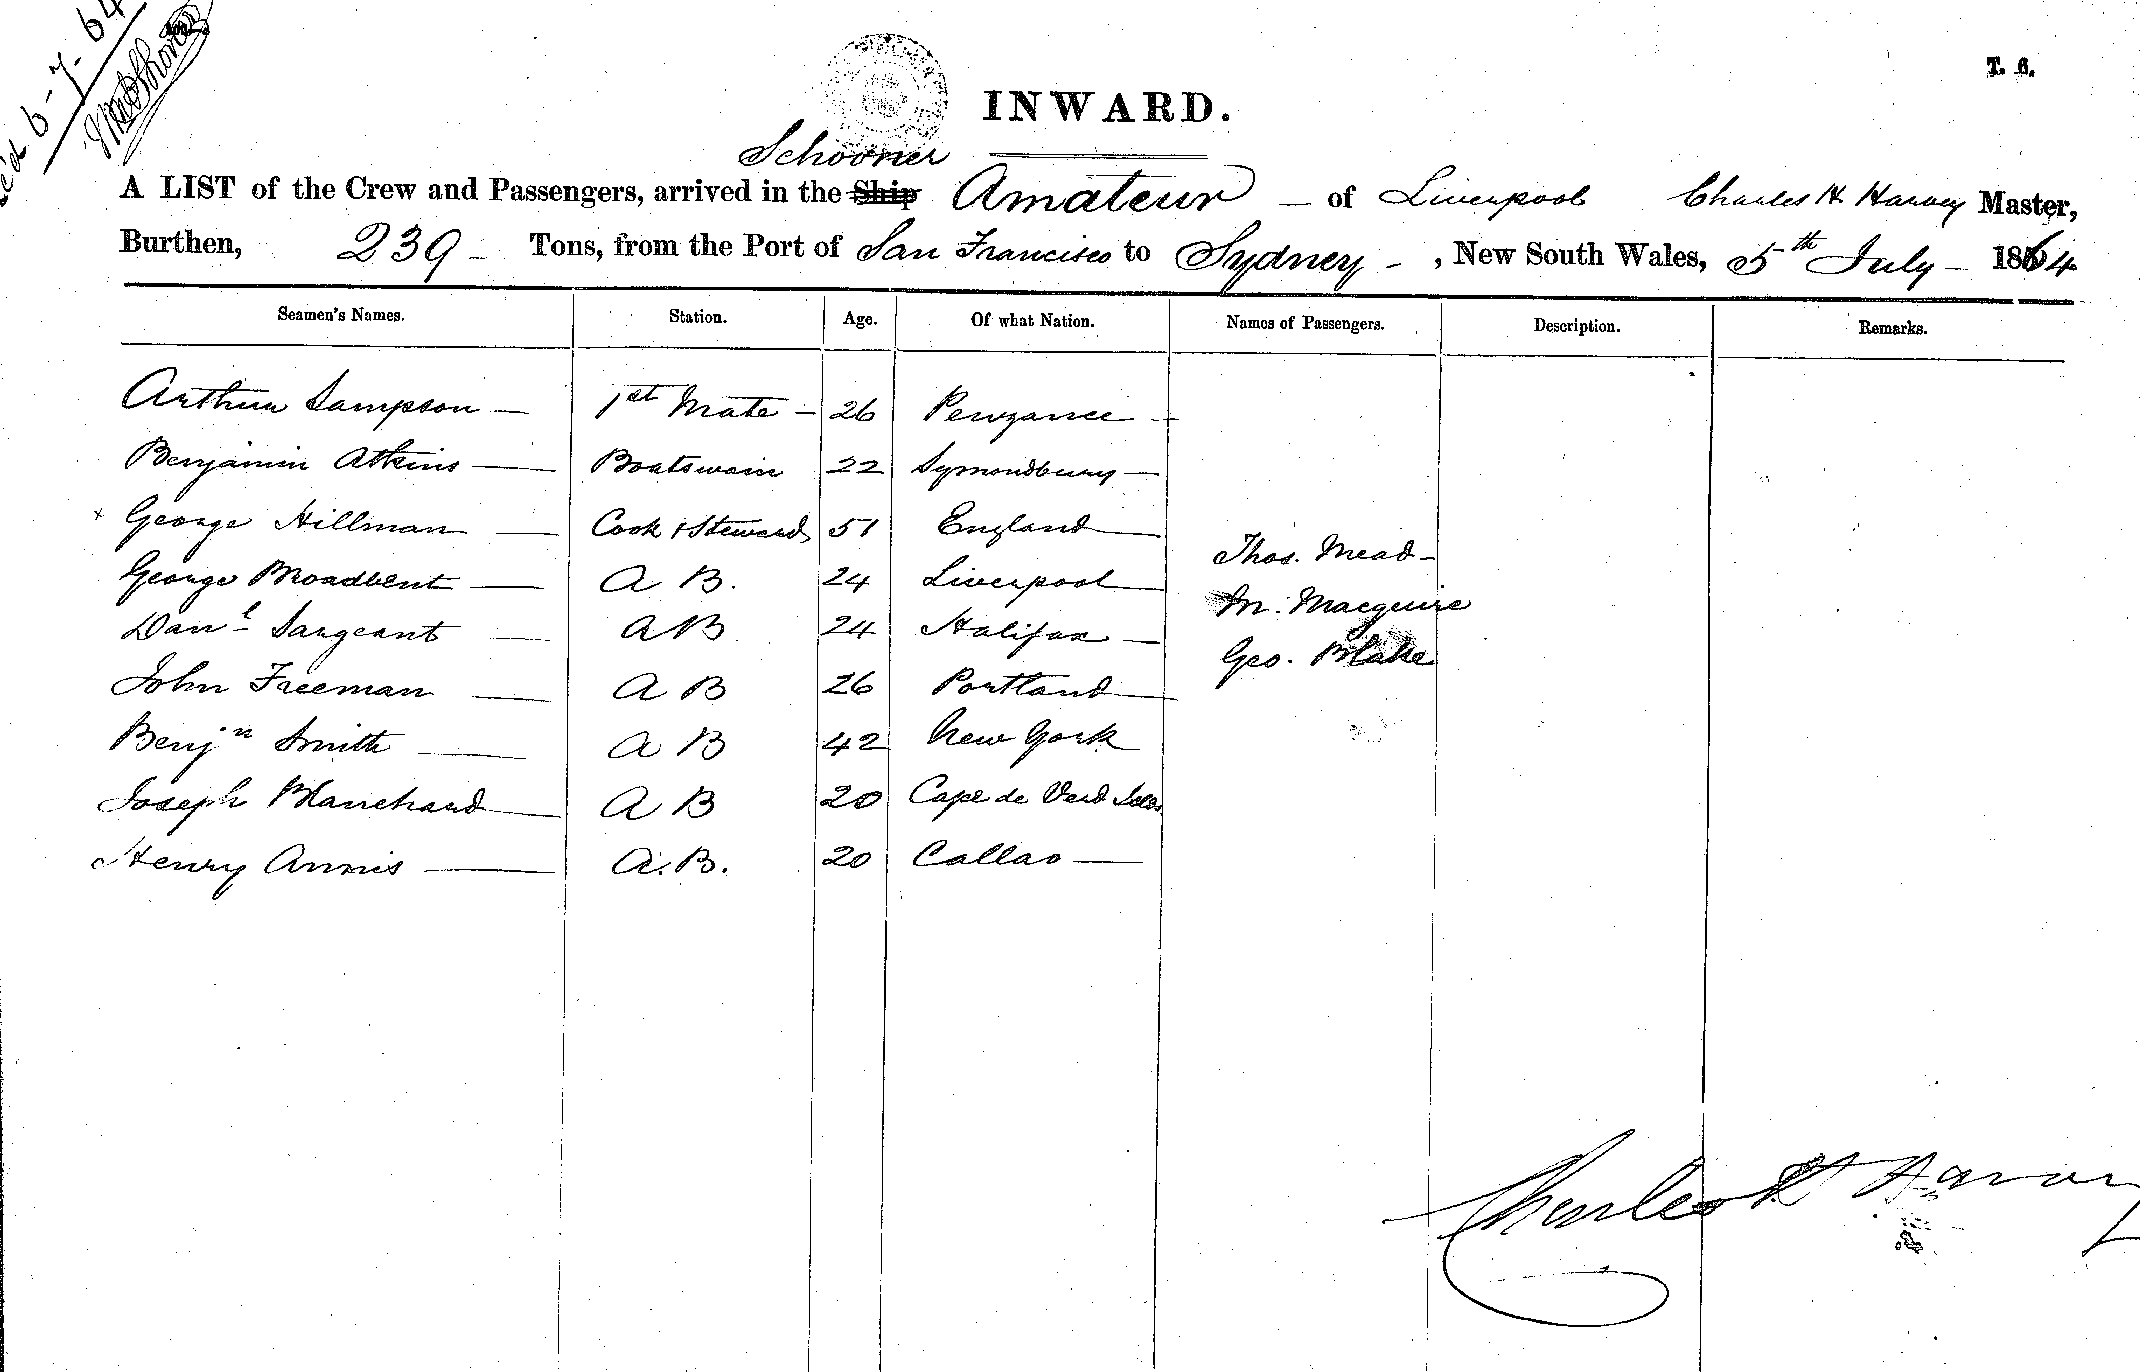 6-7-64
T. 6.
INWARD.
Schooner
A LIST of the Crew and Passengers, arrived in the Ship Amateur – of Liverpool Charles H Harvey Master,
Burthen, 239 – Tons, from the Port of San Francisco to Sydney – , New South Wales, 5th July – 1864
Seamen's Names. Station. Age. Of what Nation. Names of Passengers. Description. Remarks.
Arthur Sampson — 1st Mate – 26 Penzance —
Benjamin Atkins — Boatswain 22 Symondbury —
x George Hillman — Cook & Steward 51 England —
Thos. Mead –
George Broadbent — A B. 24 Liverpool —
M. Macguire
Danl Sargeant — A B 24 Halifax —
Geo. Blake
John Freeman — A B 26 Portland —
Benjn Smith — A B 42 New York
Joseph Blanchard — A B 20 Cape de Verd Isles
Henry Annis — A.B. 20 Callao —
Charles H Harvey